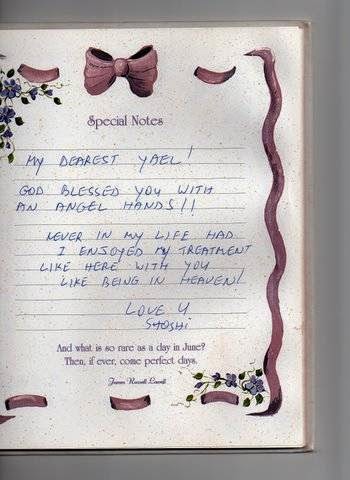 Special Notes
MY DEAREST YAEL!
GOD BLESSED YOU WITH
AN ANGEL HANDS!!
NEVER IN MY LIFE HAD
I ENJOYED MY TREATMENT
LIKE HERE WITH YOU
LIKE BEING IN HEAVEN!
LOVE U
SHOSHI
And what is so rare as a day in June?
Then, if ever, come perfect days.
James Russell Lowell